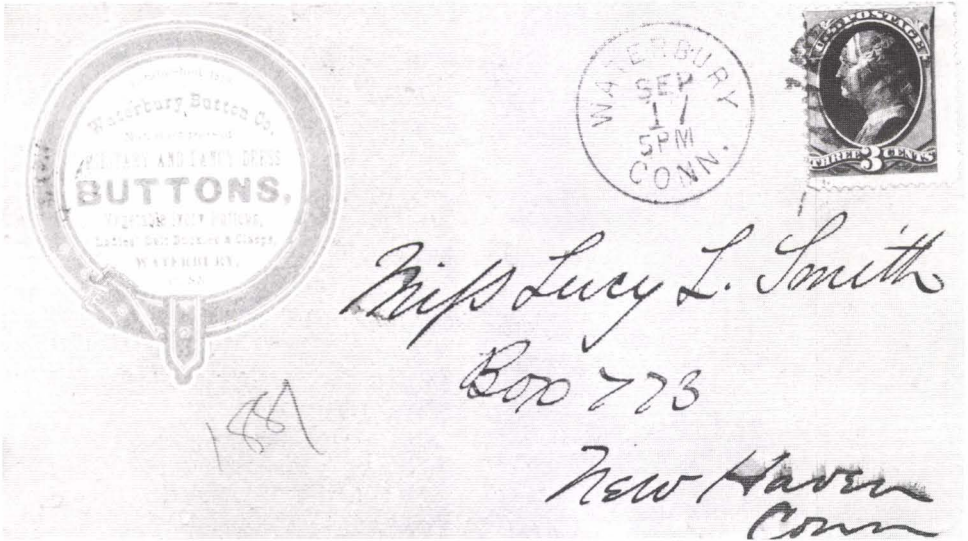 Waterbury Button Co.
MILITARY AND FANCY DRESS
BUTTONS,
Vegetable Ivory Buttons,
Ladies' Belt Buckles & Clasps,
WATERBURY,
WATERBURY
SEP
17
5PM
CONN.
U.S. POSTAGE
THREE 3 CENTS
Miss Lucy L. Smith
Box 773
New Haven
Conn
1881